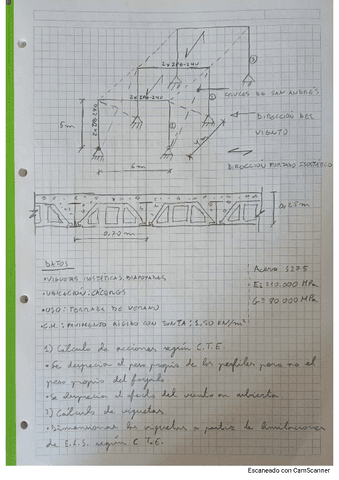 2x IPE-240
2x IPE-240
CRUCES DE SAN ANDRÉS
DIRECCIÓN DEL
VIENTO
5m
6m
DIRECCIÓN FORJADO ISOSTÁTICO
0,25m
0,70m
DATOS
• VIGUETAS ISOSTÁTICAS, BIAPOYADAS
• UBICACIÓN: CÁCERES
• USO: TERRAZA DE VERANO
• C.M.: PAVIMENTO RÍGIDO CON JUNTA: 1,50 KN/m²
Acero S275
E=210.000 MPa
G=80.000 MPa
1) Cálculo de acciones según C.T.E.
• Se desprecia el peso propio de los perfiles pero no el
peso propio del forjado
• Se desprecia el efecto del viento en cubierta
2) Cálculo de viguetas
• Dimensionar las viguetas a partir de limitaciones
de E.L.S. según C.T.E.
Escaneado con CamScanner